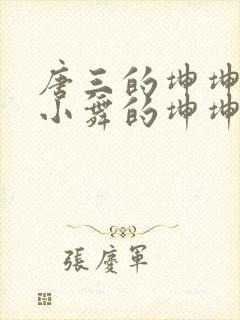 唐三的坤坤
小舞的坤坤
張慶軍